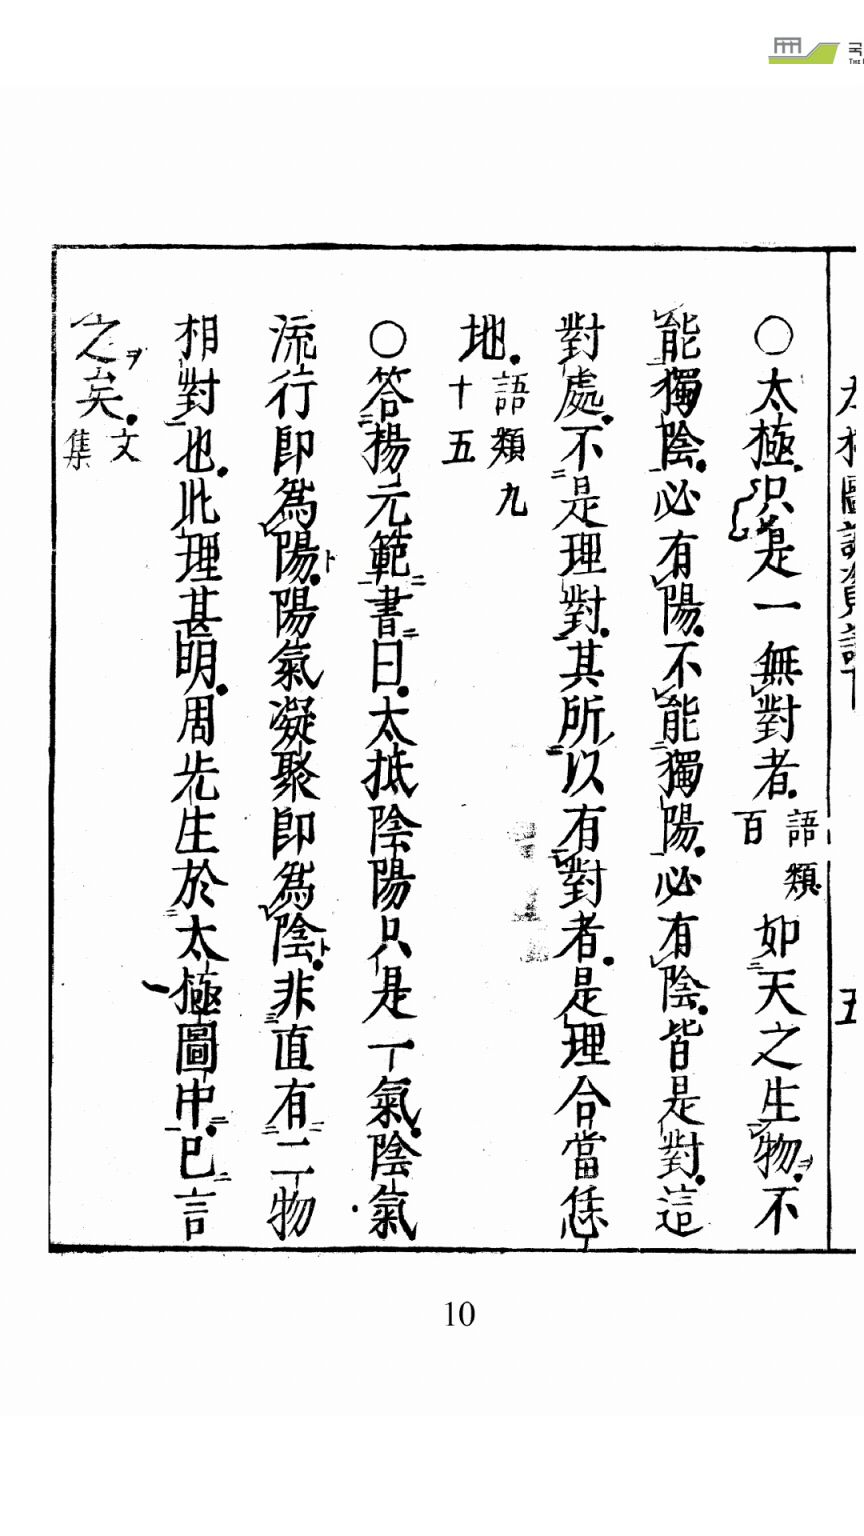 〇太極只是一無對者語類百如天之生物不
能獨陰必有陽不能獨陽必有陰皆是對這
對處不是理對其所以有對者是理合當恁
地語類九十五
〇答揚元範書曰太抵陰陽只是一氣陰氣
流行即爲陽陽氣凝聚即爲陰非直有二物
相對也此理甚明周先生於太極圖中已言
之矣文集
10